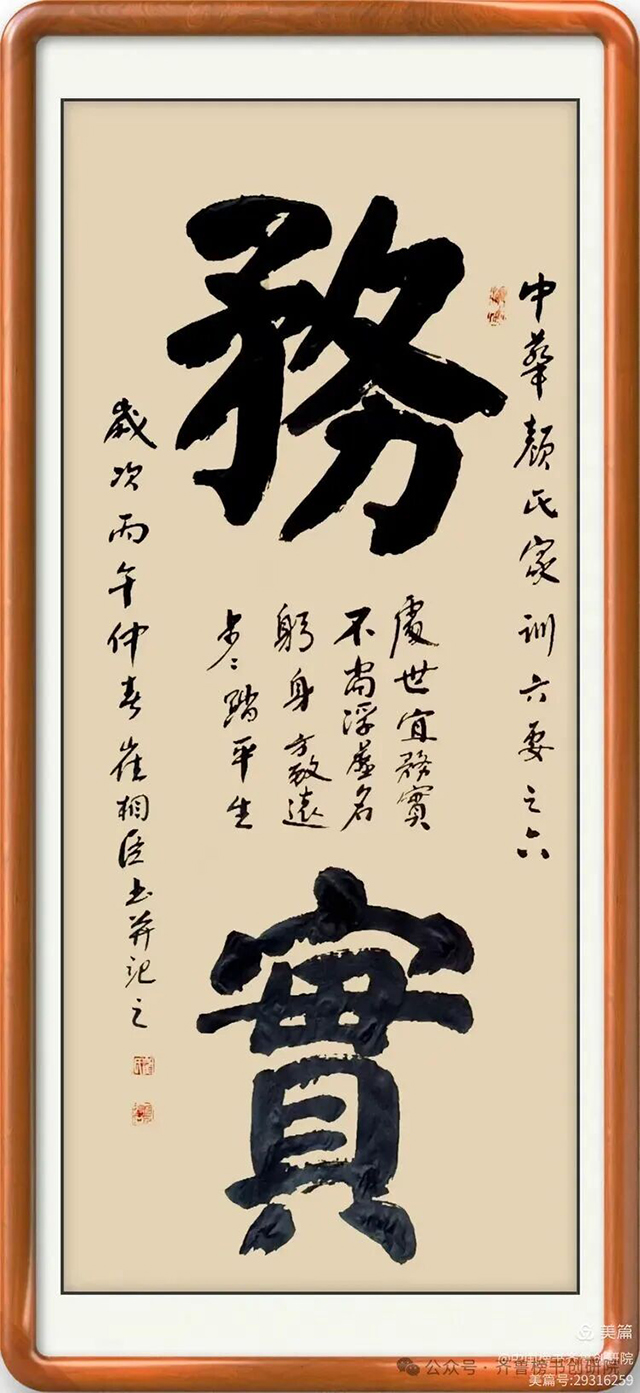 中華顏氏家訓六要之六
務實
處世宜務實
不尚浮虛名
躬身方致遠
步〻踏平生
歲次丙午仲春崔相臣书并記之
美篇
公众号·齐鲁榜书创研院
美篇号:29316259